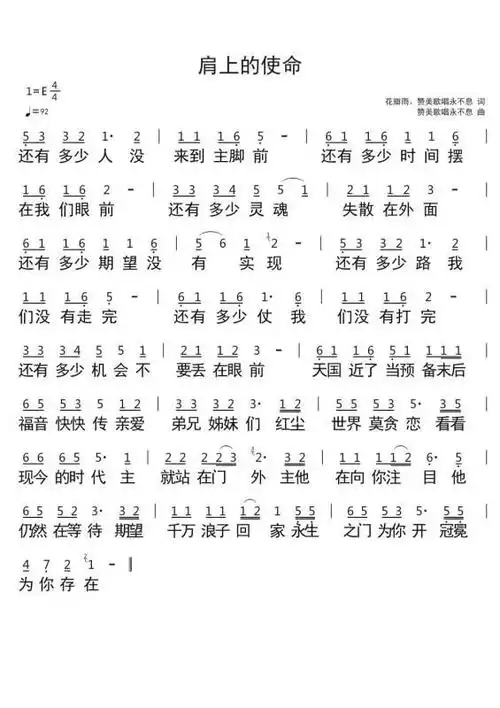 肩上的使命
1=E 4/4
♩=92
花瓣雨、赞美歌唱永不息 词
赞美歌唱永不息 曲
5 3 3 2 1· 2 | 1 1 1 6 6 - | 6 1 1 6 5 3 2 |
还有多少人没 来到主脚前 还有多少时间摆
1 6 1 6 2 - | 5 3 3 2 5 5 1 | 5 3 3 2 2 - |
在我们眼前 还有多少灵魂 失散在外面
6 1 1 6 1 1 6 | 5 6 1 2 - | 6 1 1 6 1· 6 |
还有多少期望没 有 实现 还有多少路我
1 1 1 6 2 - | 6 1 1 6 1· 6 | 1 1 1 6 2 - |
们没有走完 还有多少仗我 们没有打完
3 3 3 3 5 5 1 | 2 2 3 2 2 - | 1 6 1 6 5 5 5 5 |
还有多少机会不 要丢在眼前 天国近了当预备末后
6 5 5 5 3· 2 1 2 | 3 3 3 2 3· 1 1 2 | 3 3 3 2 3 6 5 |
福音快快传亲爱 弟兄姊妹们红尘 世界莫贪恋看看
6 6 6 1 5 5 | 2 2 2 2 3 5 3 2 | 1 1 1 2 1 6 6 5 |
现今的时代主 就站在门 外主他 在向你注 目他
5 5 5 5 3 2 1 2 | 3 3 3 2 1 1 1 2 | 3 2 3 3 3· 6 5 |
仍然在等待期望 千万浪子回 家永生 之门为你开冠冕
4 7 2 1 - ‖
为你存在